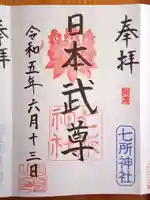 奉拝
開運
七所神社
日本武尊
七所神社
令和五年六月十三日
奉拝